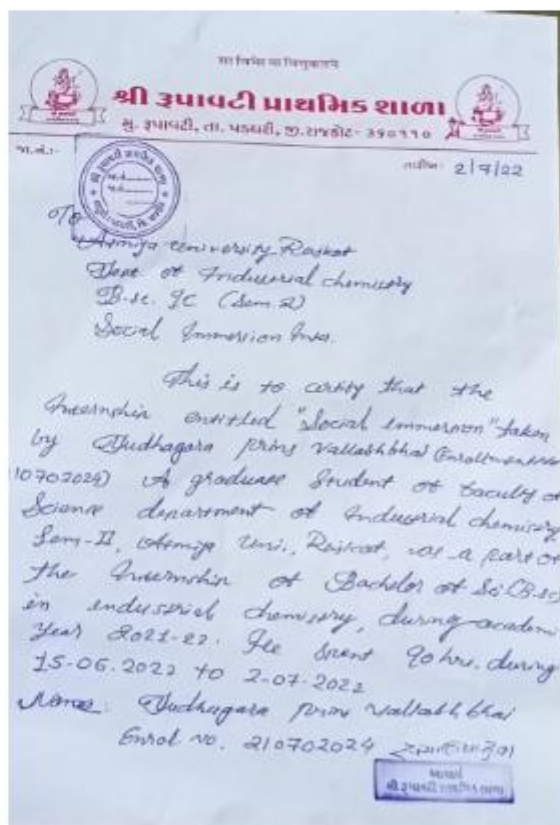 सा विद्या या विमुक्तये
શ્રી રૂપાવટી પ્રાથમિક શાળા
મુ. રૂપાવટી, તા. પડધરી, જી. રાજકોટ- ૩૬૦૧૧૦
જા.નં.:- તારીખ: 2/7/22
To
Atmiya University Rajkot
Dept of Industrial chemistry
B.sc. IC (Sem. 2)
Social Immersion
This is to certify that the
Internship entitled "Social immersion" taken
by Dudhagara prins Vallabhbhai (Enrollment No
210702024) A graduate Student of faculty of
Science department of Industrial chemistry
Sem-II, Atmiya Uni., Rajkot, as a part of
the Internship of Bachelor of Sci (B.sc)
in industrial chemistry, during academic
Year 2021-22. He spent 90 hrs. during
15-06.2022 to 2-07.2022
Name: Dudhagara prins vallabhbhai
Enrol no. 210702024
આચાર્ય
શ્રી રૂપાવટી પ્રાથમિક શાળા